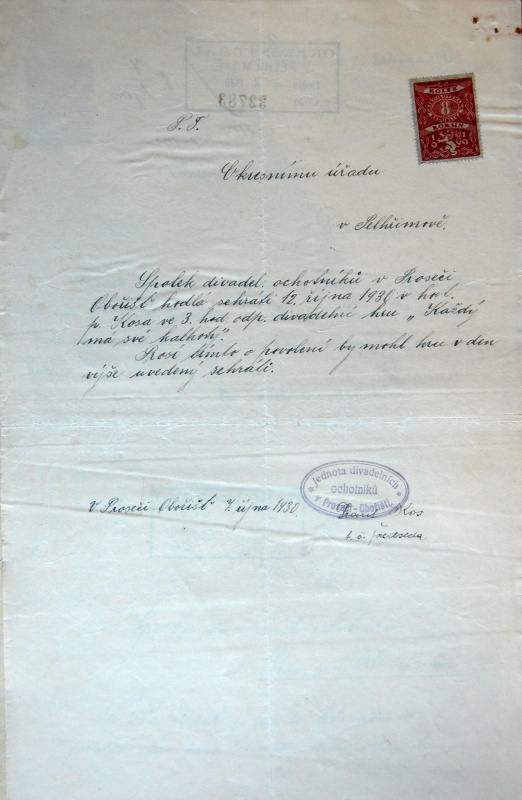 KOLEK
8
KORUN
P. T.
Okresnímu úřadu
v Pelhřimově.
Spolek divadel. ochotníků v Proseči
Obořišť hodlá sehráti 12. října 1930 v host.
p. Kosa ve 3. hod. odp. divadelní hru „Každý
má své kalhoty“.
Prosí tímto o povolení by mohl hru v den
výše uvedený sehráti.
Jednota divadelních
ochotníků
v Proseči-Obořišti.
V Proseči Obořišť 7. října 1930.
Kos
t. č. předseda
32783